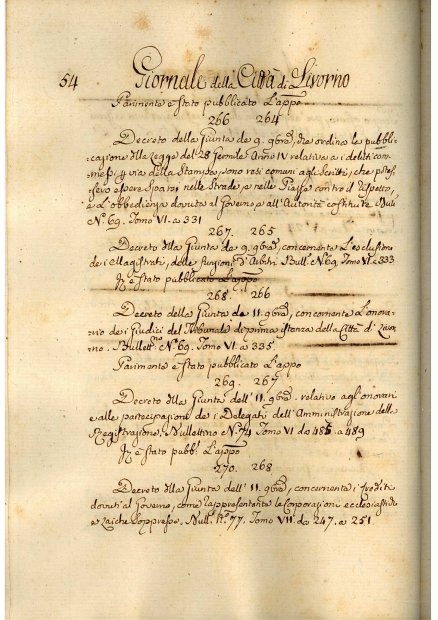 54 Giornale della Città di Livorno
Parimente è stato pubblicato l'appo
266 264
Decreto della Giunta de 9. 9bre, che ordina la pubbli-
cazione della Legge del 28 Germile Anno IV relativa a i delitti com-
messi p via della Stampa, sono resi comuni agli Scritti, che potes-
sero essere sparsi nelle Strade, e nelle Piazze contro il rispetto,
e l'obbedienza dovuta al Governo e all'Autorità costituite Bull
N.° 69. Tomo VI. a 331
267. 265
Decreto della Giunta de 9. 9bre, concernente l'esclusione
de i Magistrati, dalle funzioni d'Arbitri Bull. N.° 69. Tomo VI. a 333
È stato pubblicato l'appo
268. 266
Decreto della Giunta de 11. 9bre, concernente l'onora-
rio de i Giudici del Tribunale di prima istanza della Città di Livor-
no. Bullett.no N.° 69. Tomo VI. a 335.
Parimente è stato pubblicato l'appo
269. 267
Decreto della Giunta dell' 11. 9bre relativo agl'onorari
e alle partecipazioni de i Delegati dell'Amministrazione della
Registrazione. Bullettino N.° 74 Tomo VI da 485 a 489
È stato pubb. l'appo
270. 268
Decreto della Giunta dell' 11. 9bre, concernente i
dovuti al Governo, come rappresentante le Corporazioni ecclesiastiche
e Laiche soppresse. Bull. N.° 77. Tomo VII. da 247. a 251.